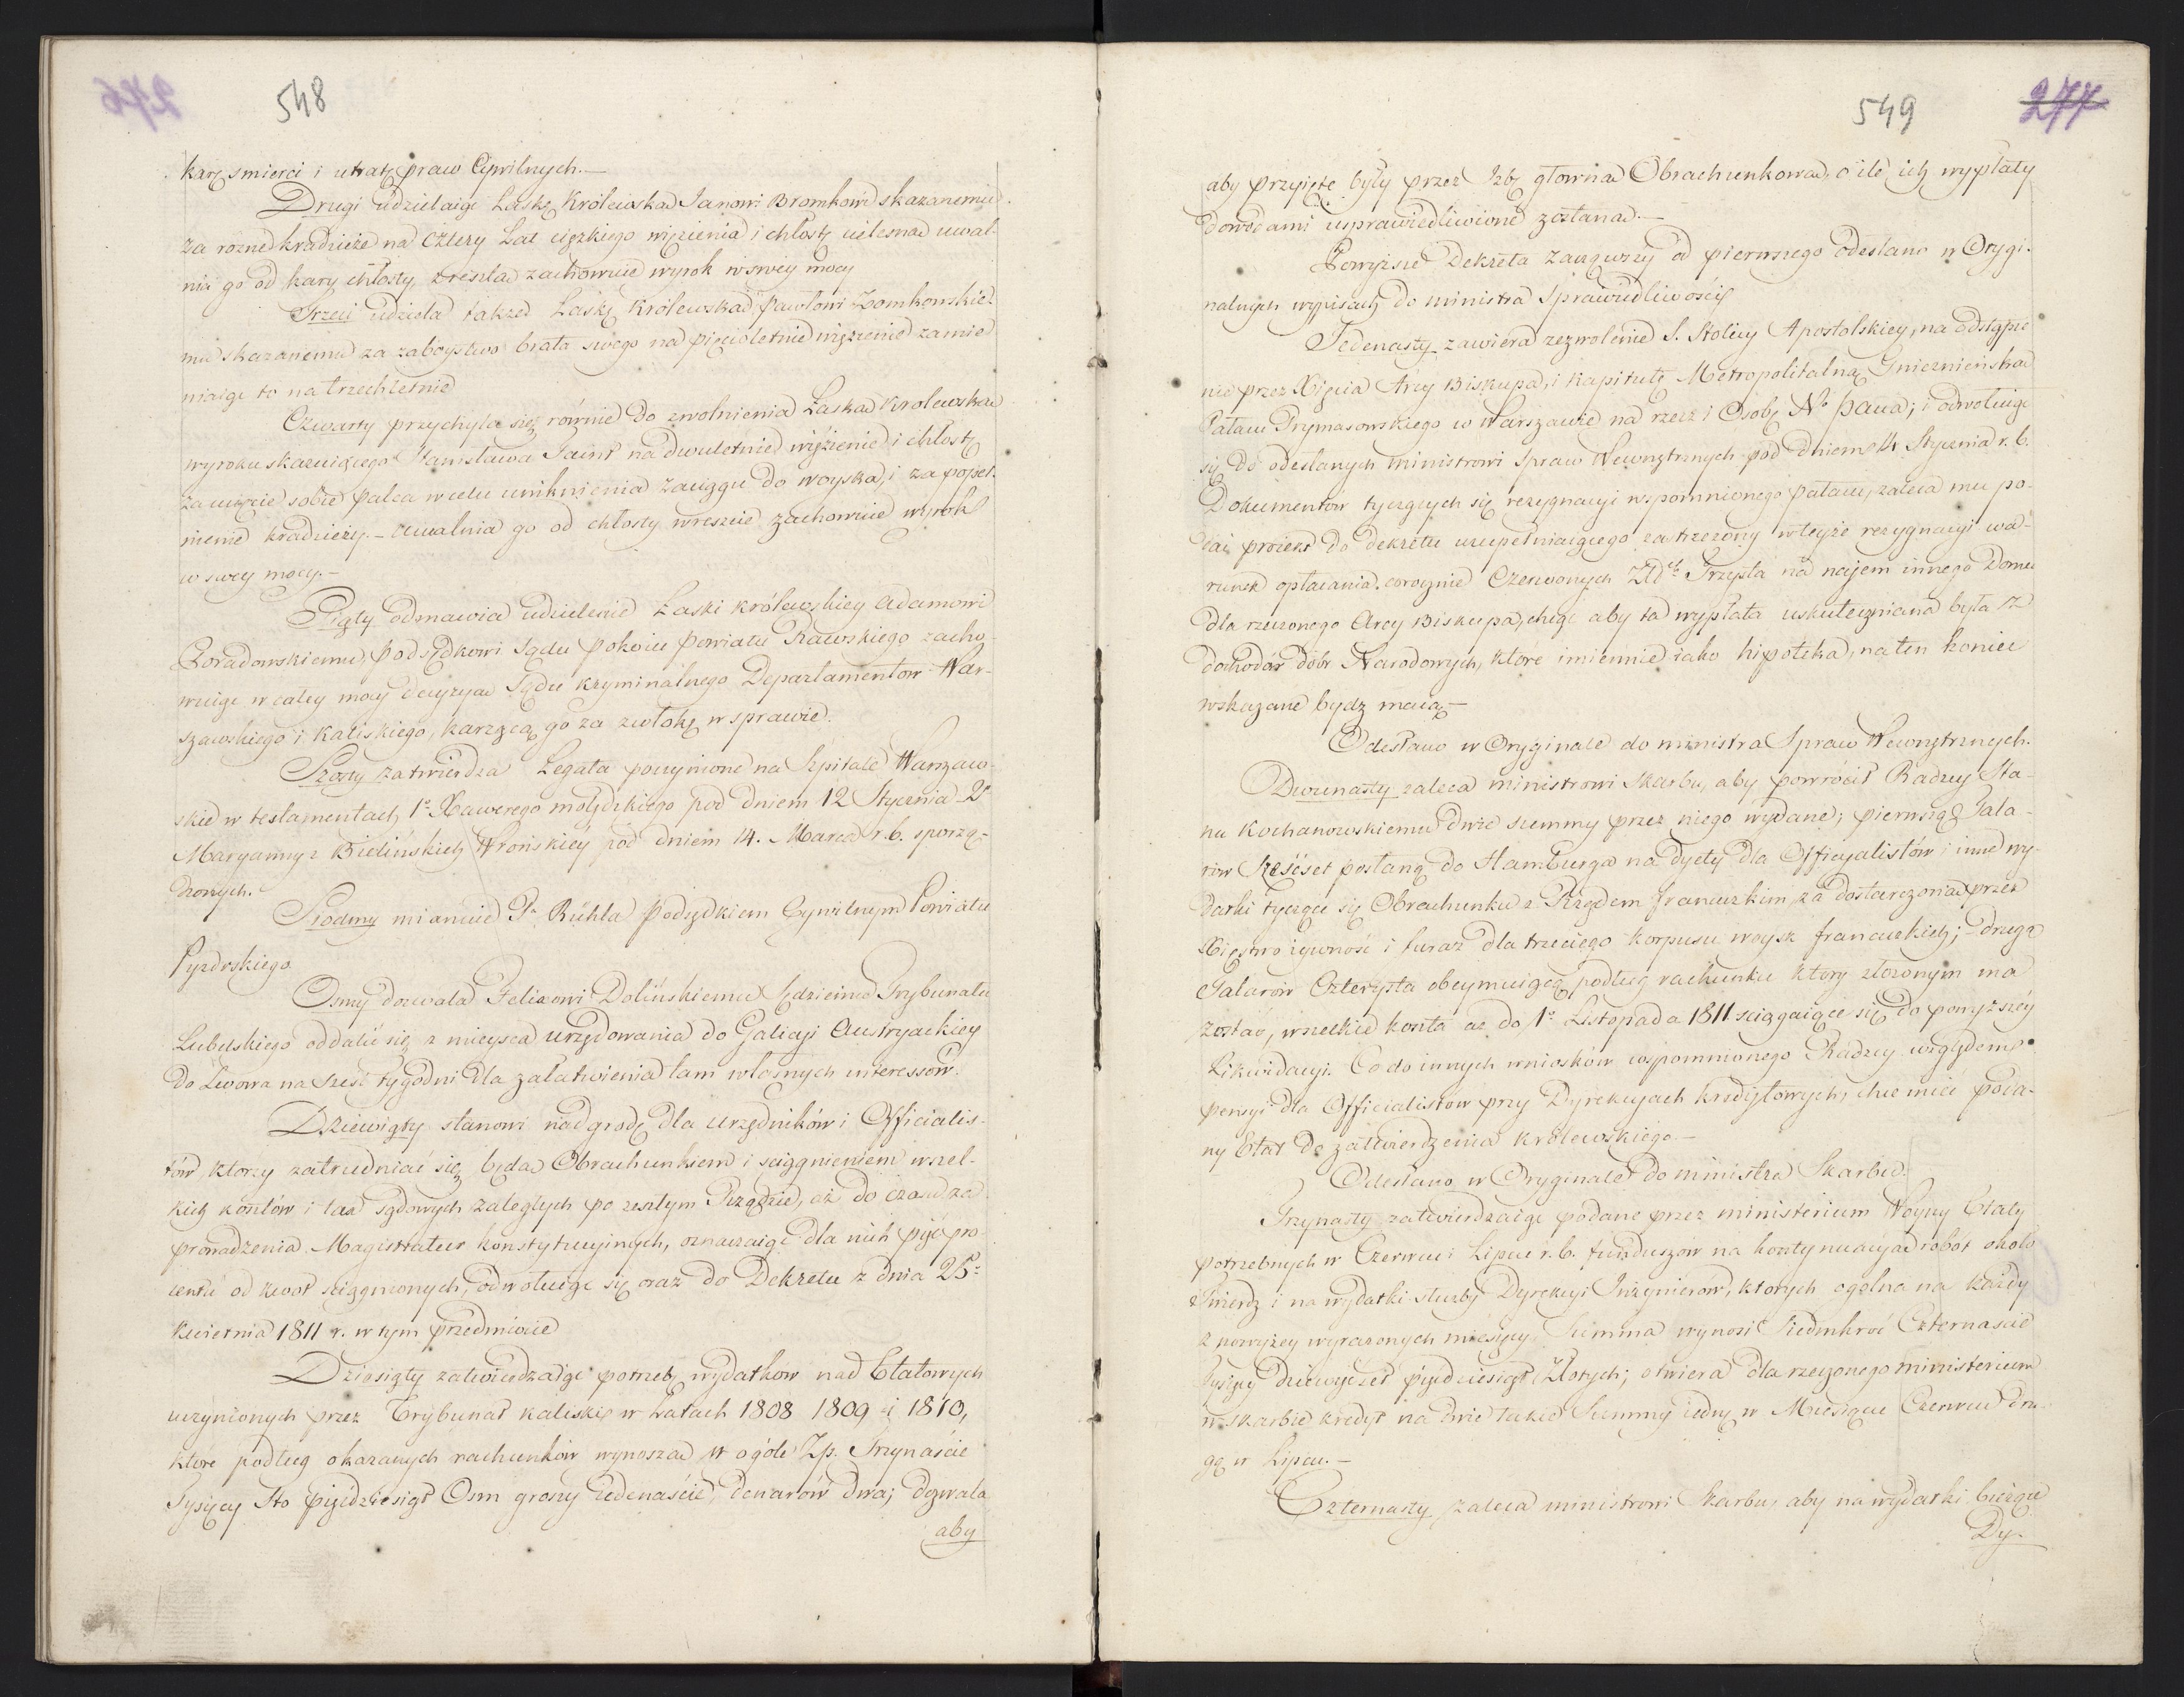 548
karę smierci i utratę praw Cywilnych.—
Drugi udzielaiąc Łaskę Królewską Janowi Bromkowi skazanemu
za rożne kradzieże na cztery Lat cięzkiego więzienia i chłostę cielesną uwal-
nia go od kary chłosty, zresztą zachowuie wyrok w swey mocy
Trzeci udziela także Łaskę Królewską Pawłowi Zomkowskie-
mu skazanemu za zaboystwo brata swego na pięcioletnie więzienie zamie-
niaiąc to na trzechletnie
Czwarty przychyla się równie do zwolnienia Łaską Krolewską
wyroku skazuiącego Stanisława Saint na dwuletnie więzienie i chłostę
za ucięcie sobie palca w celu uniknienia zaciągu do woyska, i za popeł-
nienie kradzieży.— uwalnia go od chłosty wreszcie zachowuie wyrok
w swey mocy.—
Piąty odmawia udzielenie Łaski królewskiey Adamowi
Poradowskiemu, podsędkowi Sądu pokoiu powiatu Rawskiego zacho-
wuiąc w całey mocy decyzyą Sądu kryminalnego Departamentow War-
szawskiego i Kaliskiego, karzącą go za zwłokę w sprawie.
Szosty zatwierdza Legata poczynione na Szpitale Warszaw-
skie w testamentach 1º Xawerego pod dniem 12 Stycznia 2º
Maryanny z Bielińskich Wrońskiey pod dniem 14. Marca r. b. sporzą-
dzonych.
Siodmy mianuie Pa Rühla podsędkiem Cywilnym Powiatu
Pyzdrskiego
Osmy dozwala Felixowi Dolińskiemu Sędziemu Trybunału
Lubelskiego oddalić się z mieysca urzędowania do Galicyi Austryackiey
do Lwowa na sześć tygodni dla załatwienia tam własnych interessów.
Dziewiąty stanowi nadgrodę dla urzędników i Officialis-
tów ktorzy zatrudniać się będą Obrachunkiem i sciągnieniem wszel-
kich kosztów i tax sądowych zaległych po zeszłym Rządzie, aż do czasu za-
prowadzenia Magistratur konstytucyinych, oznaczaiąc dla nich pięć pro-
centu od kwot sciągnionych, odwołuiąc się oraz do Dekretu z dnia 25º
Kwietnia 1811 r. w tym przedmiocie
Dziesiąty zatwierdzaiąc potrzebę wydatków nad Etatowych
uczynionych przez Trybunał kaliski w Latach 1808 1809 i 1810,
które podług okazanych rachunków wynoszą w ogóle Zp. Trzynaście
Tysięcy Sto pięćdziesiąt Osm groszy iedenaście, denarów dwa; dozwala
aby
549
277
aby przyięte były przez Izbę głowną Obrachunkową, o ile ich wypłaty
dowodami usprawiedliwione zostaną.—
Powyższe Dekreta zacząwszy od pierwszego odesłano w Orygi-
nalnych wypisach do ministra Sprawiedliwości
Jedenasty zawiera zezwolenie S. Stolicy Apostolskiey, na odstąpie-
nie przez Xięcia Arcy Biskupa, i kapitułę Metropolitalną Gnieznieńską
Pałacu Prymasowskiego w Warszawie na rzecz i Osobę No Pana; i odwołuiąc
się do odesłanych ministrowi Spraw Wewnętrznych pod dniem 4 Stycznia r. b.
Dokumentów tyczących się rezygnacyi wspomnionego pałacu, zaleca mu po-
dać proiekt do dekretu uzupełniaiącego zastrzeżony w teyże rezygnacyi wa-
runek opłacania corocznie Czerwonych Złotch Trzysta na najem innego Domu
dla rzeczonego Arcy Biskupa, chcąc aby ta wypłata uskuteczniana była z
dochodów dóbr Narodowych, które imiennie iako hipoteka, na ten koniec
wskazane bydz maią—
Odesłano w Oryginale do ministra Spraw Wewnętrznych.
Dwunasty zaleca ministrowi Skarbu, aby powrócił Radzcy Sta-
nu Kochanowskiemu dwie summy przez niego wydane; pierwszą Tala-
rów Sześćset posłaną do Hamburga na dyety dla Officyalistów i inne wy-
datki tyczące się Obrachunku z Rządem francuzkim, za dostarczoną przez
Xięstwo żywność i furaż dla trzeciego korpusu woysk francuzkich; drugą
Talarów Czterysta obeymuiącą podług rachunku ktory złożonym ma
zostać, wszelkie koszta aż do 1º Listopada 1811 sciągaiące się do powyższéy
Likwidacyi. Co do innych wniosków wspomnionego Radzcy względem
pensyi dla Officialistow przy Dyrekcyach kredytowych, chce mieć poda-
ny Etat do zatwierdzenia królewskiego.—
Odesłano w Oryginale do ministra Skarbu.
Trzynasty zatwierdzaiąc podane przez ministerium Woyny Etaty
potrzebnych w Czerwcu i Lipcu r. b. funduszów na kontynuacyą robót około
Twierdz i na wydatki służby Dyrekcyi Inżynierów, ktorych ogólna na każdy
z powyżey wyrażonych miesięcy Summa wynosi Siedmkroć Czternaście
Tysięcy Dziewięćset pięćdziesiąt Złotych; otwiera dla rzeczonego ministerium
w skarbie kredyt na dwie takie Summy iedną w Miesiącu Czerwcu dru-
gą w Lipcu.—
Czternasty, zaleca ministrowi Skarbu, aby na wydatki bieżące
Dy-